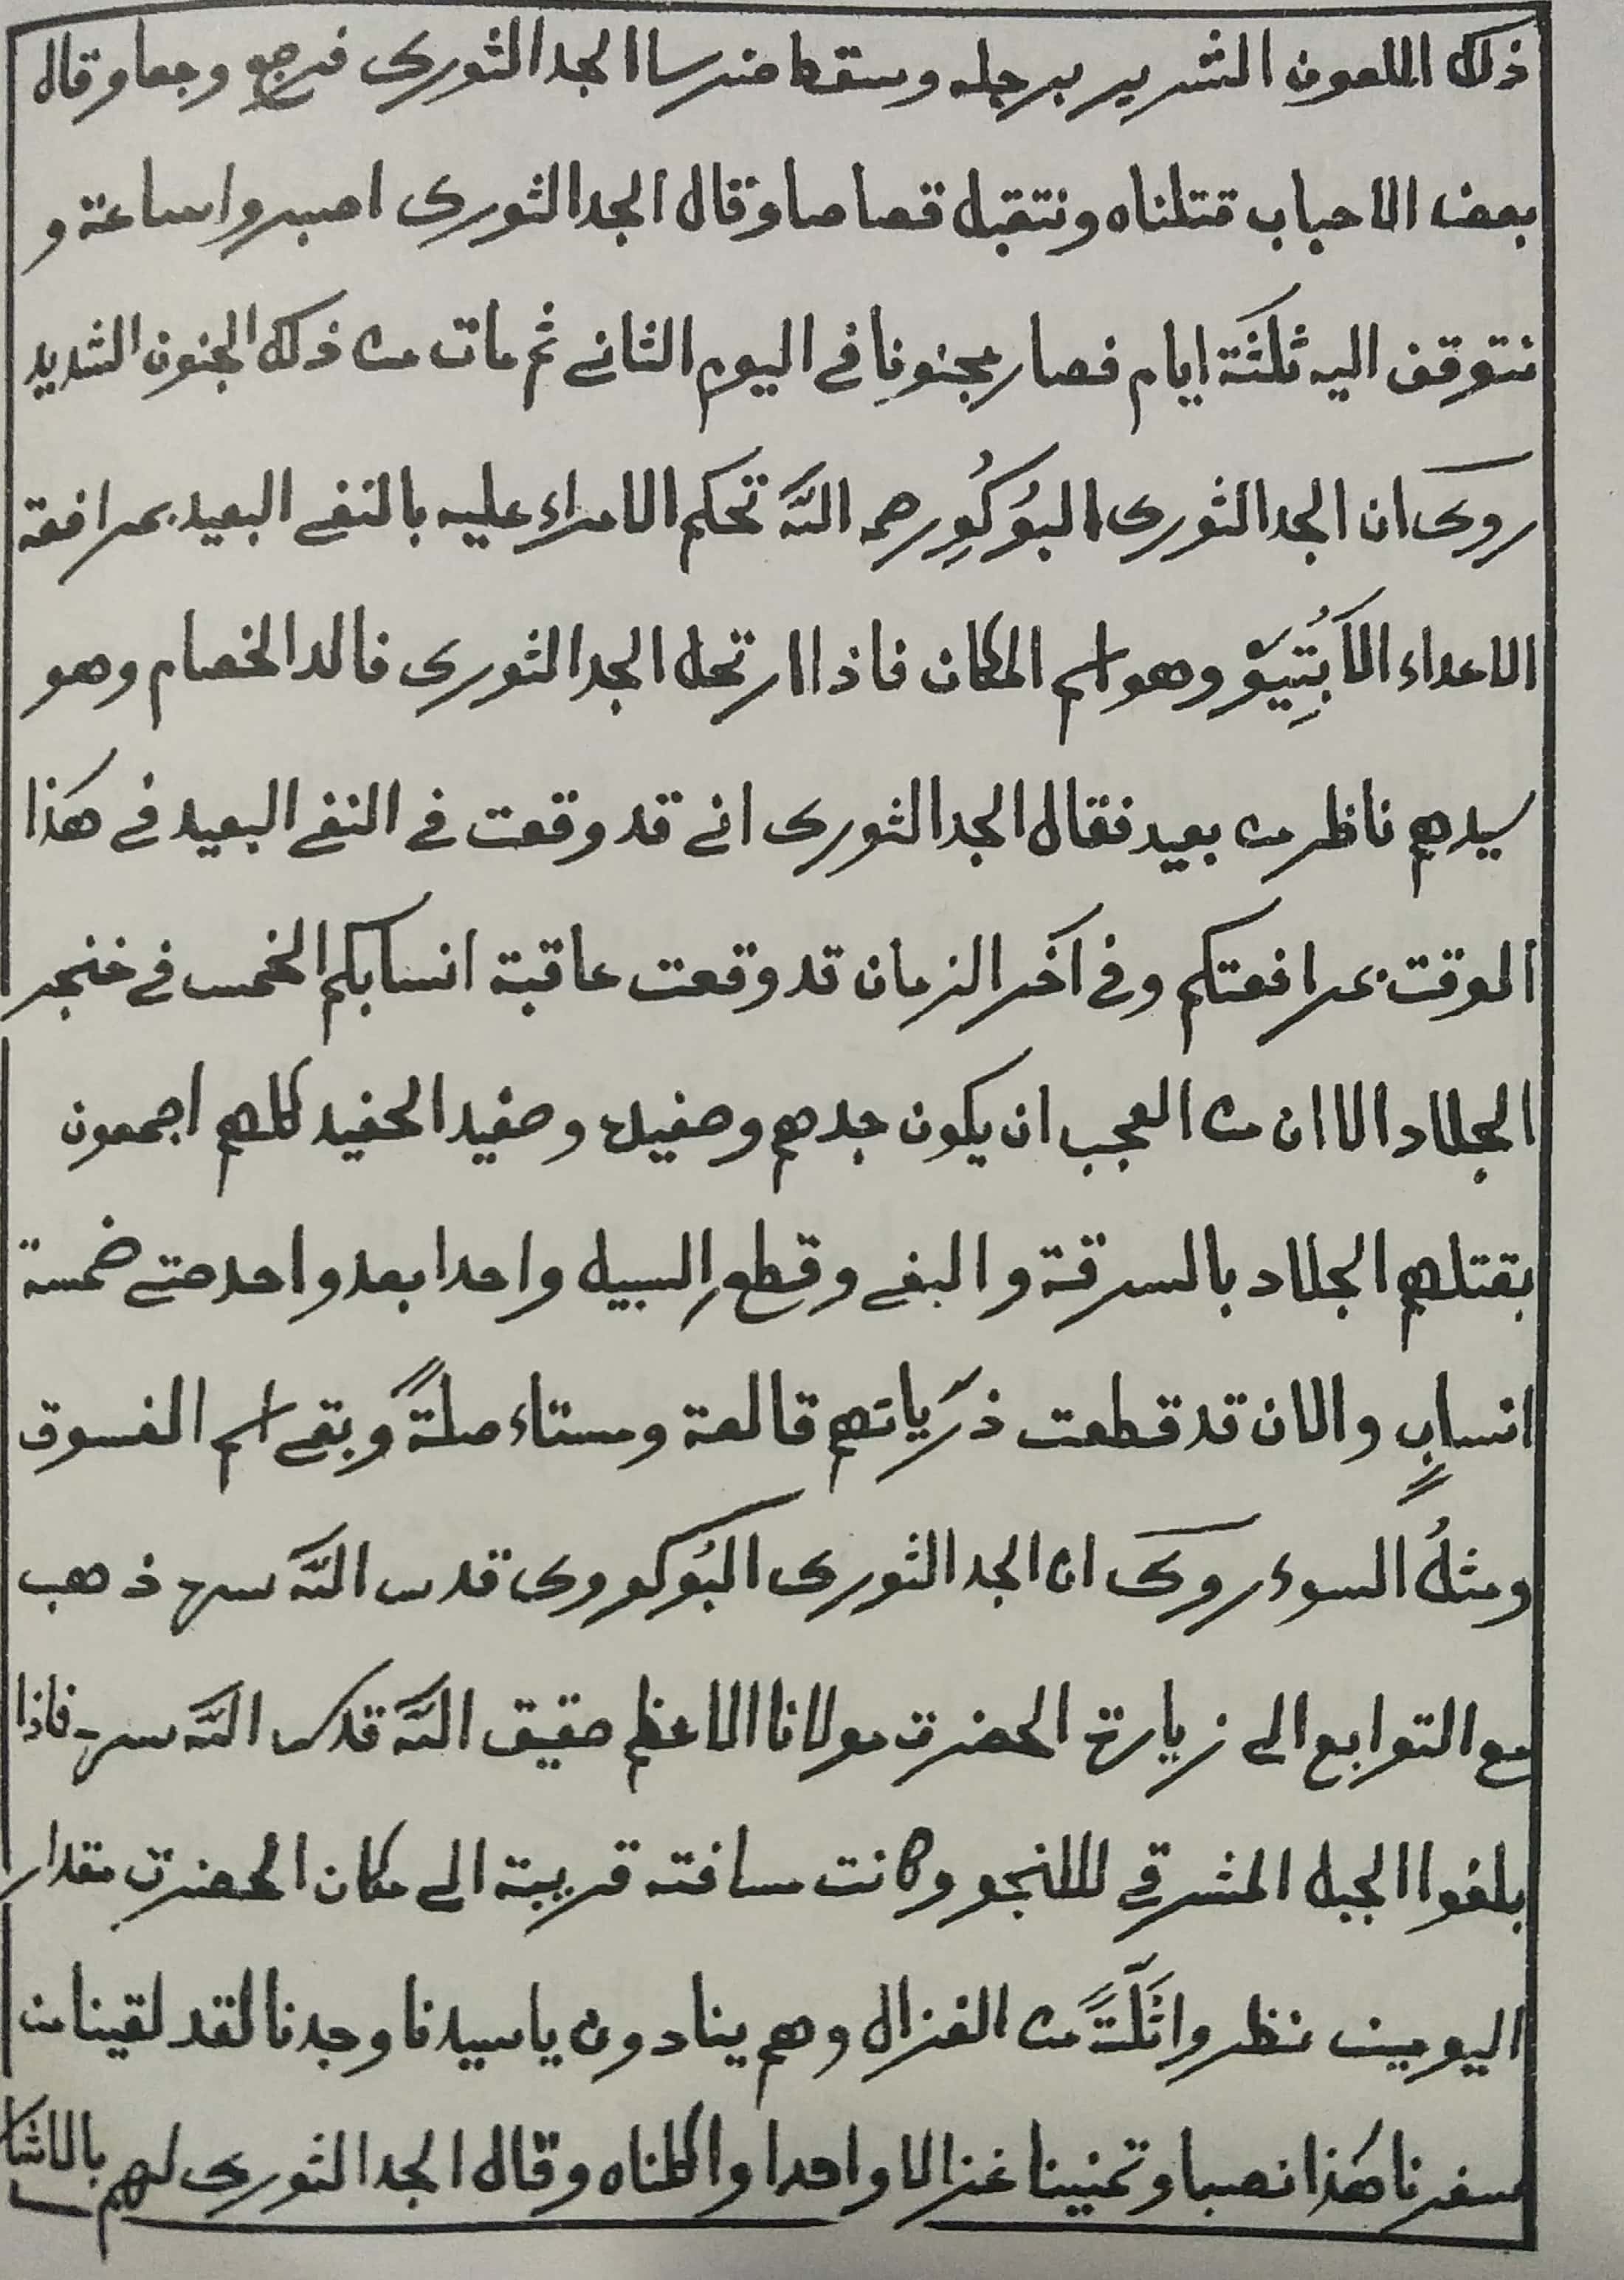 ذلك الملعون الشرير برجله وسقط ضرسا الجد الثورى فرجع وجعا وقال
بعض الاحباب قتلناه ونتقبل قصاصا وقال الجد الثورى اصبروا ساعة و
نتوقف اليه ثلثة ايام فصار مجنونا فى اليوم الثانى ثم مات من ذلك الجنون الشديد
روى ان الجد الثورى البُوكُوِ رحمه الله تحكم الامراء عليه بالنفى البعيد بمرافعة
الاعداء الاَبُتِيَوْ وهو اسم المكان فاذا ارتحل الجد الثورى فالد الخصام وهو
سيدهم ناظر من بعيد فقال الجد الثورى انى قد وقعت فى النفى البعيد فى هذا
الوقت بمرافعتكم وفى آخر الزمان قد وقعت عاقبة انسابكم الخمس فى خنجر
الجلاد الا ان من العجب ان يكون جدهم وحفيده وحفيد الحفيد كلهم اجمعون
بقتلهم الجلاد بالسرقة والبغى وقطع السبيل واحدا بعد واحد حتى خمسة
انسابٍ والان قد قطعت ذرياتهم قالعة ومستاءصلةً وبقى اسم الفسوق
ومثلُ السوء روى ان الجد الثورى البُوكوروى قدس الله سره ذهب
مع التوابع الى زيارة الحضرة مولانا الاعظم حقيق الله قدس الله سره فاذا
بلغوا الجبل المشرقى لللنجو وكانت مسافته قريبة الى مكان الحضرة مقدار
اليومين نظروا ثَلٰثَةً من الغزال وهم ينادون يا سيدنا وجدنا لقد لقينا من
سفرنا هذا نصبا وتمنينا غزالا واحدا واكلناه وقال الجد الثورى لهم بالاشا